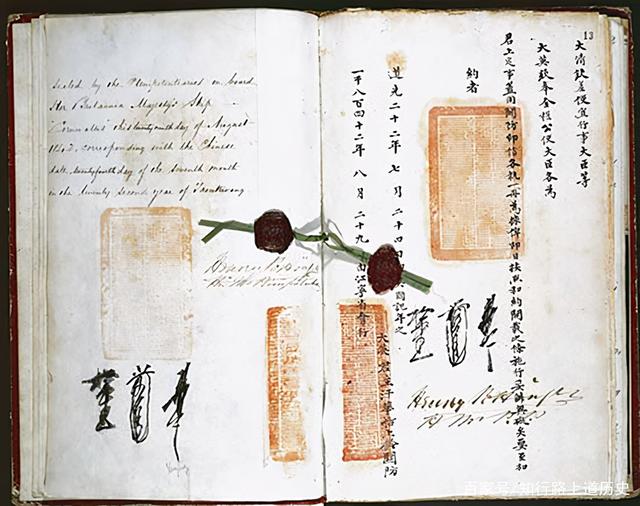 sealed by the Plenipotentiaries on board
Her Britannic Majesty's Ship
Cornwallis this twenty ninth day of August
1842, corresponding with the Chinese
date, twenty fourth day of the seventh month
in the twenty second year of Taoukwang
Henry Pottinger
13
大清欽差便宜行事大臣等
大英欽奉全權公使大臣各為
君上定事蓋用關防印信各執一冊為據俾即日按照和約開載之條施行妥辦無礙矣要至和
約者
道光二十二年七月二十四日即英國記年之
一千八百四十二年八月二十九日由江寧省會行
大英君主汗華
關防
Henry Pottinger
百家号/知行路上道历史